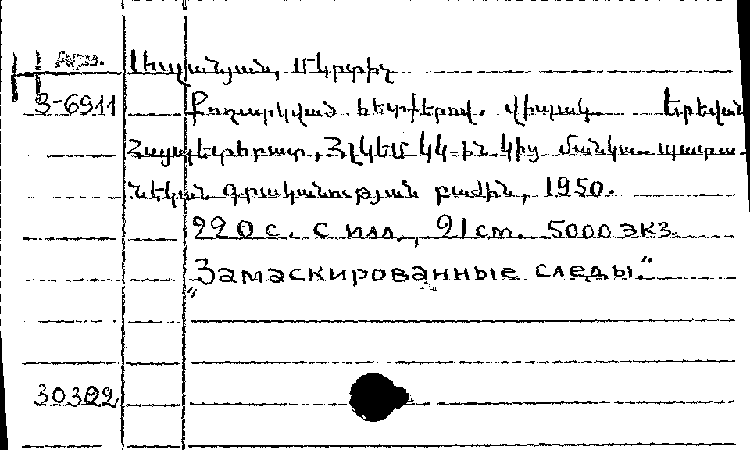 Սեպանյան, Մկրտիչ
3-6911 Քողարկված հետքերով. վիպակ. Երևան
Հայպետհրատ, ՀԼԿԵՄ ԿԿ-ին կից մանկա-պատա-
նեկան գրականության բաժին, 1950.
220 с. с илл., 21 cm. 5000 экз.
„Замаскированные следы.“
30302